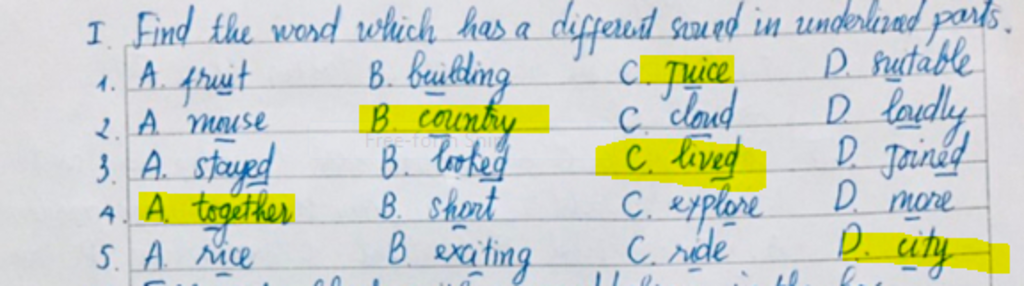 I Find the word which has a different sound in underlined parts.
1. A. fruit B. building C. Juice D. suitable
2. A. mouse B. country C. cloud D. loudly
3. A. stayed B. looked C. lived D. Joined
4. A. together B. short C. explore D. more
5. A. rice B. exciting C. ride D. city